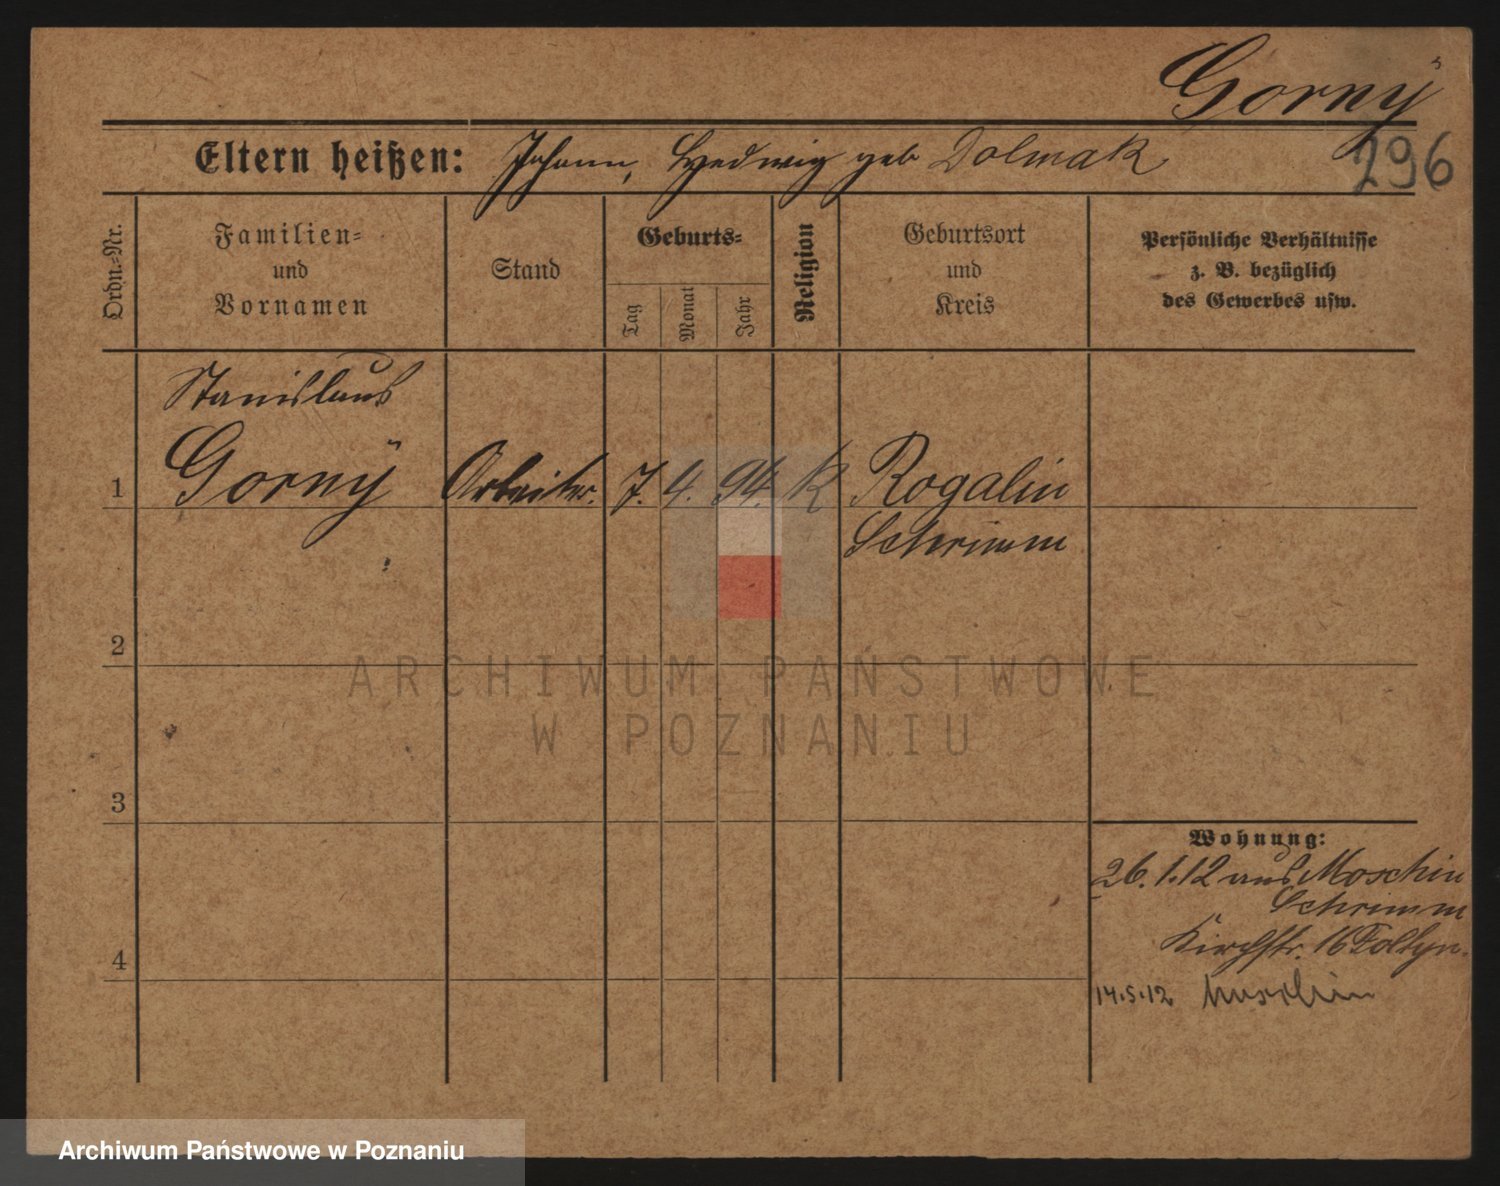 Gorny
296
Eltern heißen: Johann, Hedwig geb Dolmak
Ordn.-Nr.
Familien-
und
Vornamen
Stand
Geburts-
Tag
Monat
Jahr
Religion
Geburtsort
und
Kreis
Persönliche Verhältnisse
z. B. bezüglich
des Gewerbes usw.
Stanislaus
1 Gorny Arbeiter. 7. 4. 94. K Rogalin
Schrimm
2
ARCHIWUM PAŃSTWOWE
W POZNANIU
3
Wohnung:
26.1.12 aus Moschin
Schrimm
Kirchstr. 16 Foltyn.
4
14.5.12 Moschin
Archiwum Państwowe w Poznaniu